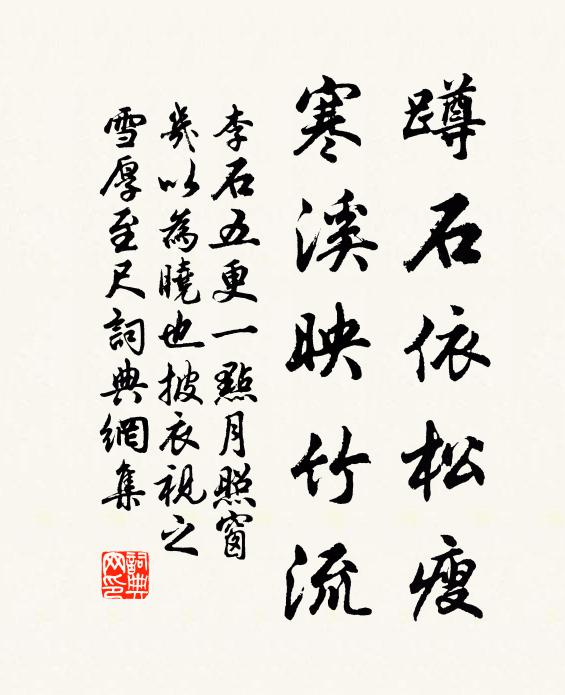 蹲石依松瘦
寒溪映竹流
李石五更一點月照窗
幾以為曉也披衣視之
雪厚至尺詞典網集
詞典
网印